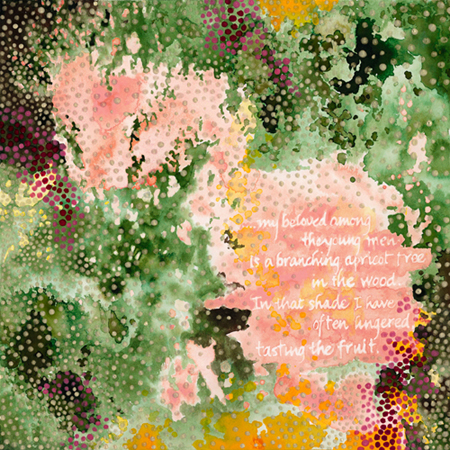 my beloved among
the young men
Is a branching apricot tree
in the wood.
In that shade I have
often lingered
tasting the fruit.